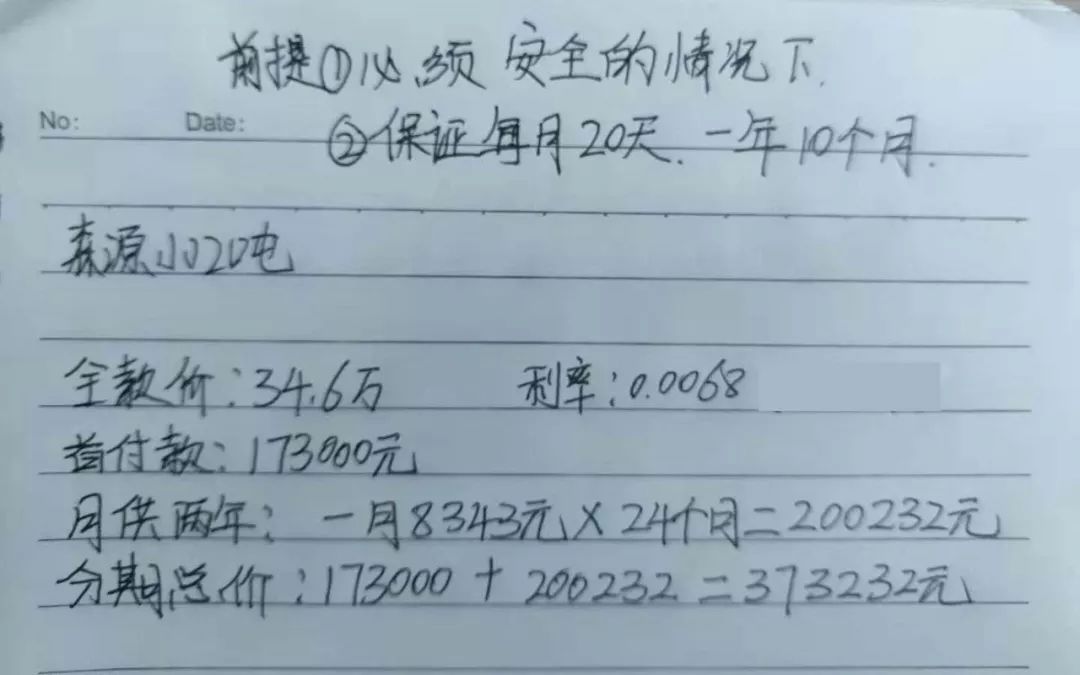 前提①必须安全的情况下.
No: Date:
②保证每月20天.一年10个月.
森源小20电
全款价:34.6万 利率:0.0068
首付款:173000元
月供两年: 一月8343元×24个月=200232元
分期总价:173000+200232=373232元